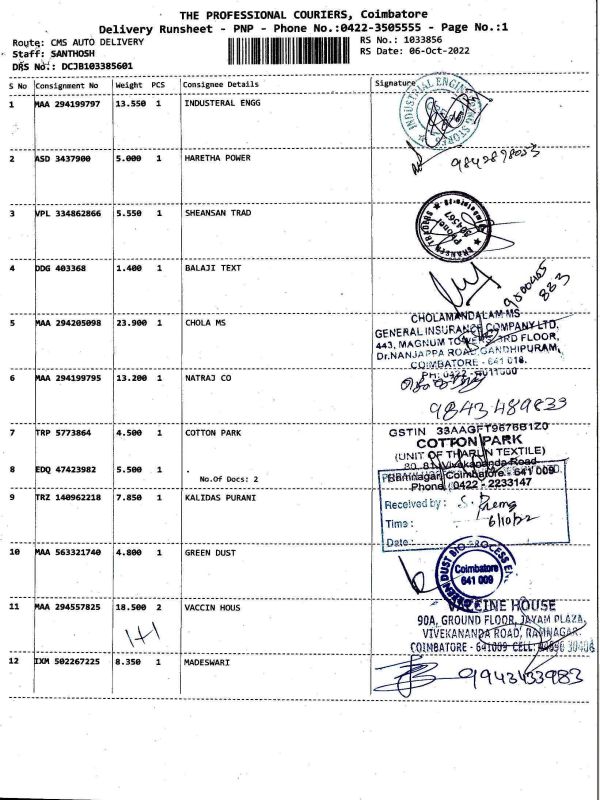 THE PROFESSIONAL COURIERS, Coimbatore
Delivery Runsheet - PNP - Phone No.:0422-3505555 - Page No.:1
Route: CMS AUTO DELIVERY
RS No.: 1033856
Staff: SANTHOSH
RS Date: 06-Oct-2022
DRS No.: DCJB103385601
S No Consignment No Weight PCS Consignee Details Signature
1 MAA 294199797 13.550 1 INDUSTERAL ENGG
INDUSTRIAL ENGINEERING STORES
2 ASD 3437900 5.000 1 HARETHA POWER
9842898053
3 VPL 334862866 5.550 1 SHEANSAN TRAD
Phone:
404567
4 DDG 403368 1.400 1 BALAJI TEXT
9500405
883
5 MAA 294205098 23.900 1 CHOLA MS
CHOLAMANDALAM MS
GENERAL INSURANCE COMPANY LTD,
443, MAGNUM TOWERS 3RD FLOOR,
Dr.NANJAPPA ROAD, GANDHIPURAM,
COIMBATORE - 641 018.
PH: 0422 - 4011000
6 MAA 294199795 13.200 1 NATRAJ CO
9843489833
7 TRP 5773864 4.500 1 COTTON PARK
GSTIN 33AAGFT9676B1Z0
COTTON PARK
(UNIT OF THARUN TEXTILE)
80, 81, Vivekananda Road
Ramnagar, Coimbatore - 641 009
Phone: 0422 - 2233147
8 EDQ 47423982 5.500 1 .
No.Of Docs: 2
9 TRZ 140962218 7.850 1 KALIDAS PURANI
Received by: S. Prema
Time :
6/10/22
Date :
10 MAA 563321740 4.800 1 GREEN DUST
GREEN DUST BIO PROCESS
Coimbatore
641 009
11 MAA 294557825 18.500 2 VACCIN HOUS
1+1
VACCINE HOUSE
90A, GROUND FLOOR, JAYAM PLAZA,
VIVEKANANDA ROAD, RAMNAGAR.
COIMBATORE - 641009 CELL: 30406
12 IXM 502267225 8.350 1 MADESWARI
9943433983